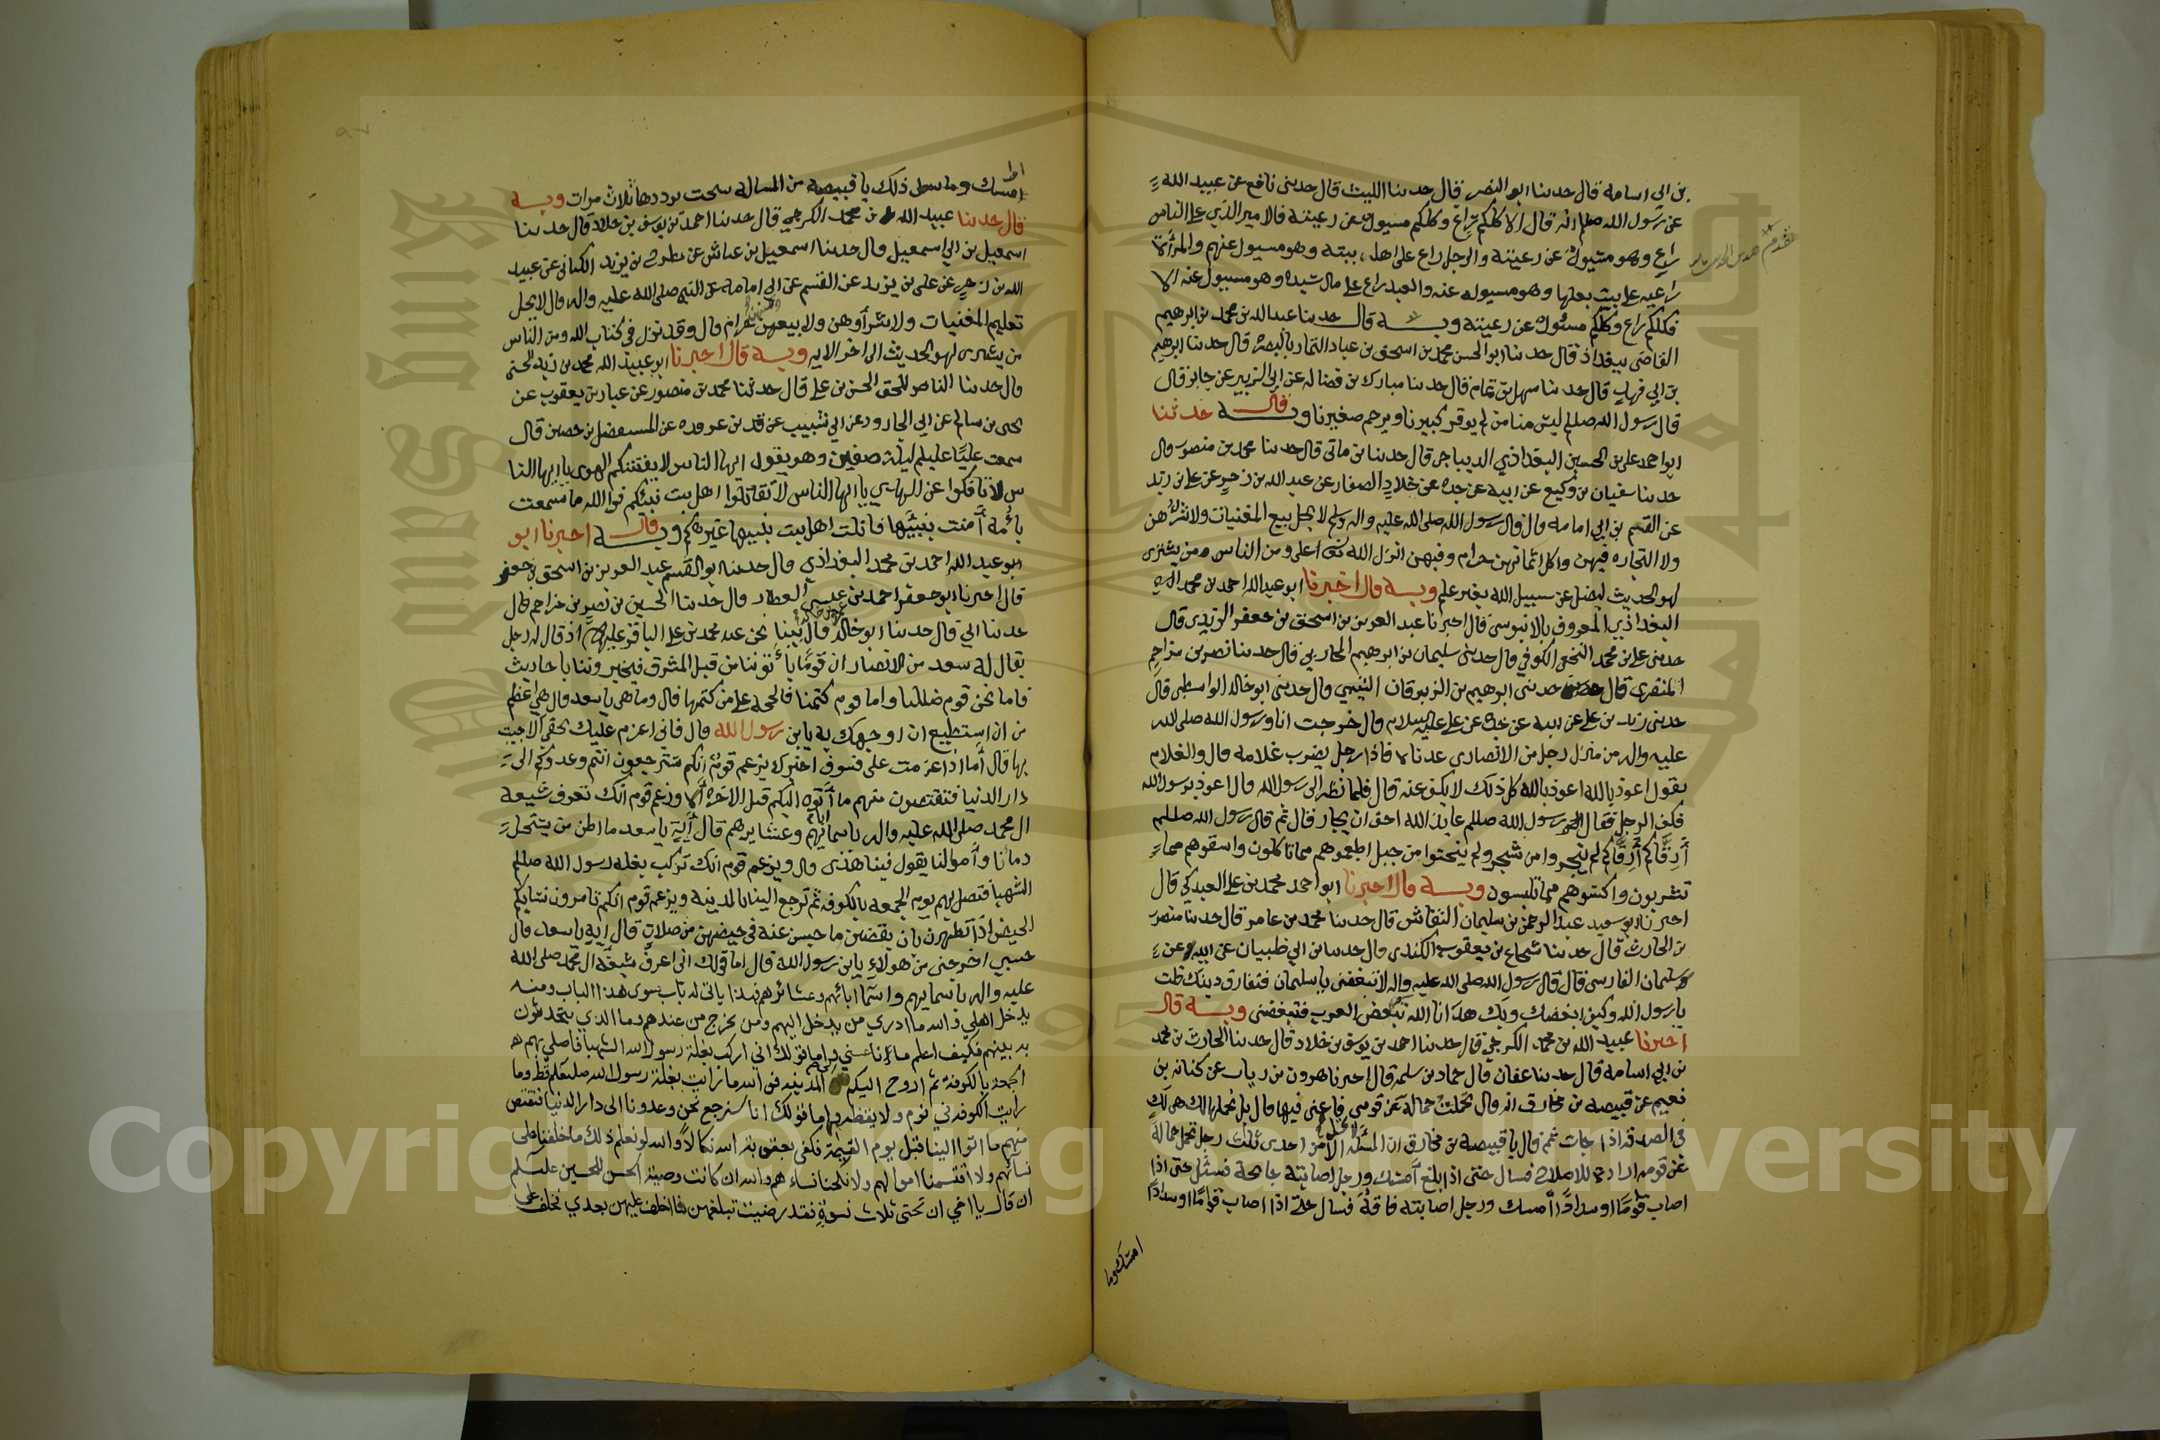 بن ابي اسامة قال حدثنا ابو النضر قال حدثنا الليث قال حدثني نافع عن عبيد الله
عن رسول الله صللم انه قال الا كلكم راع وكلكم مسيول عن رعيته فالامير الذي على الناس
راع وهو مسيول عن رعيته والرجل راع على اهل بيته وهو مسيول عنهم والمرأة
راعيه على بيت بعلها وهو مسيوله عنه والعبد راع على مال سيده وهو مسيول عنه الا
فكلكم راع وكلكم مسئول عن رعيته وبه قال حدثنا عبد الله بن محمد بن ابرهيم
القاضي ببغداذ قال حدثنا ابو الحسن محمد بن اسحق بن عباد التمار بالبصرة قال حدثنا ابرهيم
بن ابي فهد قال حدثنا سهل بن تمام قال حدثنا مبارك بن فضاله عن ابي الزبير عن جابر قال
قال رسول الله صللم ليس منا من لم يوقر كبيرنا ويرحم صغيرنا وبه قال حدثنا
ابو احمد علي بن الحسين البغداذي الديباجي قال حدثنا بن ماتي قال حدثنا محمد بن منصور قال
حدثنا سفيان بن وكيع عن ابيه عن جده عن خلاد الصفار عن عبد الله بن زحر عن علي بن زيد
عن القسم بن ابي امامه قال قال رسول الله صلى الله عليه واله وسلم لا يحل بيع المغنيات ولا شراؤهن
ولا التجاره فيهن واكل اثمانهن حرام وفيهن انزل الله ومن الناس من يشتري
لهو الحديث ليضل عن سبيل الله بغير علم وبه قال اخبرنا ابو عبد الله احمد بن محمد
البغداذي المعروف بالابنوسي قال اخبرنا عبد العزيز بن اسحق بن جعفر الزيدي قال
حدثني علي بن محمد النخعي الكوفي قال حدثني سليمان بن ابرهيم المحاربي قال حدثنا نصر بن مزاحم
المنقري قال حدثني ابرهيم بن الزبرقان التيمي قال حدثني ابو خالد الواسطي قال
حدثني زيد بن علي عن ابيه عن جده عن علي عليه السلام قال خرجت انا ورسول الله صلى الله
عليه واله من منزل رجل من الانصاري عدناه فاذا رجل يضرب غلامه قال والغلام
يقول اعوذ بالله اعوذ بالله كل ذلك لا يكف عنه قال فلما نظر الى رسول الله قال اعوذ برسول الله
فكف الرجل فقال رسول الله صللم عايذ الله احق ان يجار قال ثم قال رسول الله صللم
أرقّاكم أرقّاكم لم ينجروا من شجر ولم ينحتوا من جبل اطعموهم مما تاكلون واسقوهم مما
تشربون واكسوهم مما تلبسون وبه قال اخبرنا ابو احمد محمد بن علي العبدكي قال
اخبرنا ابو سعيد عبد الرحمن بن سليمان النقاش قال حدثنا محمد بن عامر قال حدثنا منصور
بن الحارث قال حدثنا شجاع بن يعقوب الكندي قال حدثنا بن ابي ظبيان عن ابيه عن
سلمان الفارسي قال قال رسول الله صلى الله عليه واله لا تبغضني يا سلمان فتفارق دينك قلت
يا رسول الله وكيف ابغضك وبك هدانا الله قال تبغض العرب فتبغضني وبه قال
اخبرنا عبيد الله بن محمد الكرجي قال حدثنا احمد بن يوسف بن خلاد قال حدثنا الحارث بن محمد
بن ابي اسامه قال حدثنا عفان قال حماد بن سلمه قال اخبرنا هرون بن رياب عن كنانه بن
نعيم عن قبيصه بن مخارق انه قال تحملت حمالة عن قومي فاعني فيها قال بل نحملها لك هي لك
في الصدقه اذا جات ثم قال يا قبيصه بن مخارق ان المسئلة لا تحل الا من احدى ثلث رجل تحمل حمالة
عن قومه ارادة للاصلاح فسال حتى اذا بلغ أمسك ورجل اصابته جايحة فسئل حتى اذا
اصاب قوامًا او سدادًا أمسك ورجل اصابته فاقة فسال حتى اذا اصاب قوامًا او سدادًا
امسك وما
امسك وما سوى ذلك يا قبيصه من المساله سحت يرددها ثلاث مرات وبه
قال حدثنا عبيد الله بن محمد الكرجي قال حدثنا احمد بن يوسف بن خلاد قال حدثنا
اسمعيل بن ابي اسمعيل قال حدثنا اسمعيل بن عياش عن مطرح بن يزيد الكناني عن عبيد
الله بن زحر عن علي بن يزيد عن القسم عن ابي امامه عن النبي صلى الله عليه واله قال لا يحل
تعليم المغنيات ولا شرأوهن ولا بيعهن حرام قال وقد نزل في كتاب الله ومن الناس
من يشتري لهو الحديث الى اخر الايه وبه قال اخبرنا ابو عبيد الله محمد بن زيد الحسني
قال حدثنا الناصر للحق الحسن بن علي قال حدثنا محمد بن منصور عن عباد بن يعقوب عن
يحيى بن سالم عن ابي الجارود عن ابي شبيب عن قد بن عروه عن المستفضل بن حصين قال
سمعت عليًا عليلم ليلة صفين وهو يقول ايها الناس لا يفتننكم الهوى يا ايها النا
س لا تافكوا عن الهدى يا ايها الناس لا تقاتلوا اهل بيت نبيكم فوالله ما سمعت
بأمة أمنت بنبيها قاتلت اهل بيت نبيها غيركم وبه قال اخبرنا ابو
ابو عبد الله احمد بن محمد البغداذي قال حدثنا ابو القسم عبد العزيز بن اسحق بن جعفر
قال اخبرنا ابو جعفر احمد بن عيسى العطار قال حدثنا الحسين بن نصر بن مزاحم قال
حدثنا ابي قال حدثنا ابو خالد قال بينا نحن عند محمد بن علي الباقر عليهم اذ قال له رجل
يقال له سعد من الانصار ان قومًا يأتوننا من قبل المشرق فيخبروننا باحاديث
فاما نحن قوم ضللنا واما قوم كتمنا فالحجه على من كتمها قال وما هي يا سعد قال هي اعظم
من ان استطيع ان اوجهك به يا بن رسول الله قال فاني اعزم عليك بحقي الا جيت
بها قال أما اذا عزمت علي فسوف اخبرك يزعم قوم انكم سترجعون انتم وعدوكم الى
دار الدنيا فتقتصون منهم ما أتوه اليكم قبل الاخرة وزعم قوم انك تعرف شيعة
ال محمد صلى الله عليه واله باسمائهم وعشايرهم قال إية يا سعد ما اظن من يستحل
دمانا وأموالنا يقول فينا هذى قال ويزعم قوم انك تركب بغله رسول الله صللم
الشهبا فتصل بهم يوم الجمعه بالكوفه ثم ترجع الينا بالمدينه ويزعم قوم انكم تامرون نسايكم
الحيض اذا تطهرن بان يقضين ما حبسن عنه في حيضهن من صلاتٍ قال ايه يا سعد قال
حسبي اخرجني من هولاء يا بن رسول الله قال اما قولك اني اعرف شيعة ال محمد صلى الله
عليه واله باسمايهم واسمآ ابائهم وعشائرهم فهذا ياتي له باب سوى هذا الباب ومنه
يدخل اهلي فوالله ما ادري من يدخل اليهم ومن يخرج من عندهم وما الذي يتحدثون
به بينهم فكيف اعلم ما نا عني واما قولك اني اركب بغلة رسول الله الشهبا فاصلي بهم
الجمعة بالكوفة ثم اروح اليكم المدينه فوالله ما رايت بغلة رسول الله صلعلم قط وما
رايت الكوفه في نوم ولا يقظه واما قولك انا سنرجع نحن وعدونا الى دار الدنيا فنقتص
منهم ما اتوا الينا قبل يوم القيمة فكفى بعقوبة الله نكالًا والله لو نعلم ذلك ما خلفناهم على
نسائهم ولا اقتسمنا اموالهم ولا نكحنا نساءهم والله ان كانت وصية الحسن للحسين عليسلم
ان قال يا اخي ان تحتي ثلاث نسوة فقد رضيت تبلغهن فاخلف عليهن بعدي تخلف على
Copyright © King Saud University
King Saud University